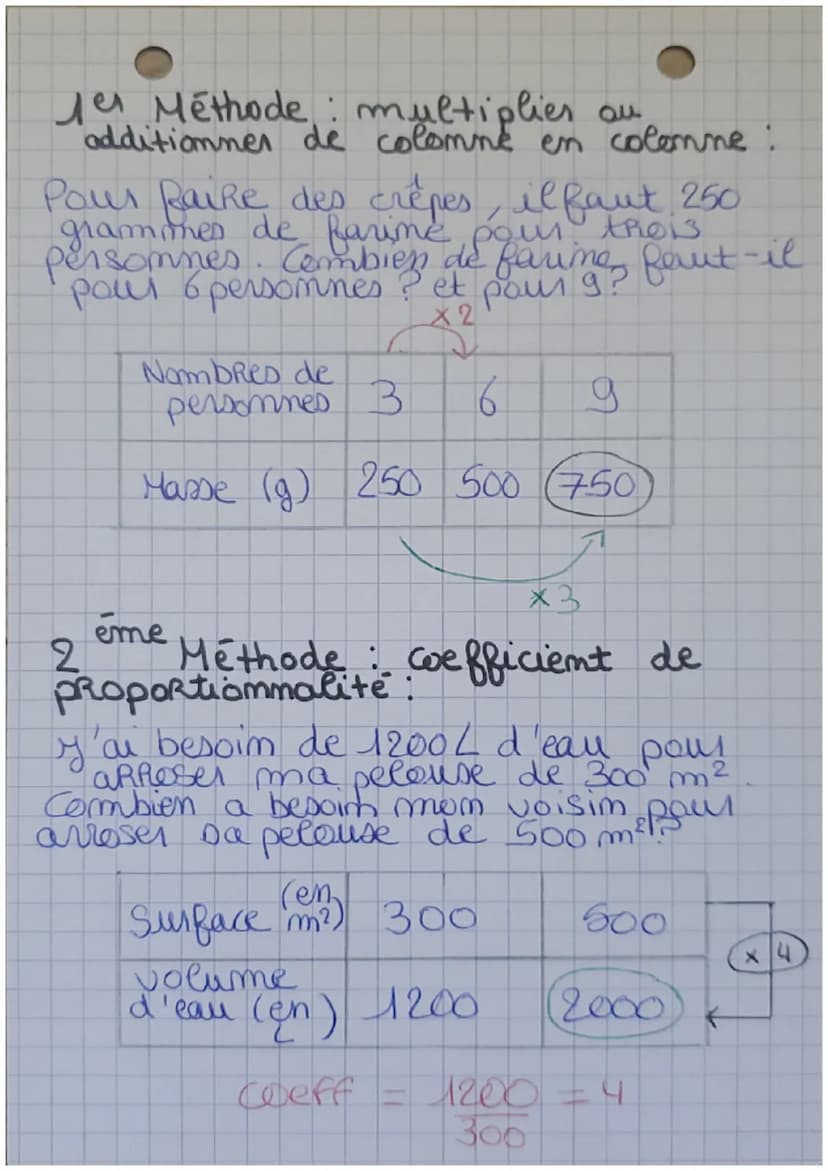 1er Méthode : multiplier ou
additionner de colonne en colonne :
Pour faire des crêpes, il faut 250
grammes de farine pour trois
personnes. Combien de farine faut-il
pour 6 personnes ? et pour 9 ?
x 2
Nombres de
personnes 3 6 9
Masse (g) 250 500 750
x 3
2ème Méthode : coefficient de
proportionnalité :
J'ai besoin de 1200L d'eau pour
arroser ma pelouse de 300 m².
Combien a besoin mon voisin pour
arroser sa pelouse de 500 m² ?
Surface (en m²) 300 500
x 4
volume
d'eau (en L) 1200 2000
coeff = 1200/300 = 4